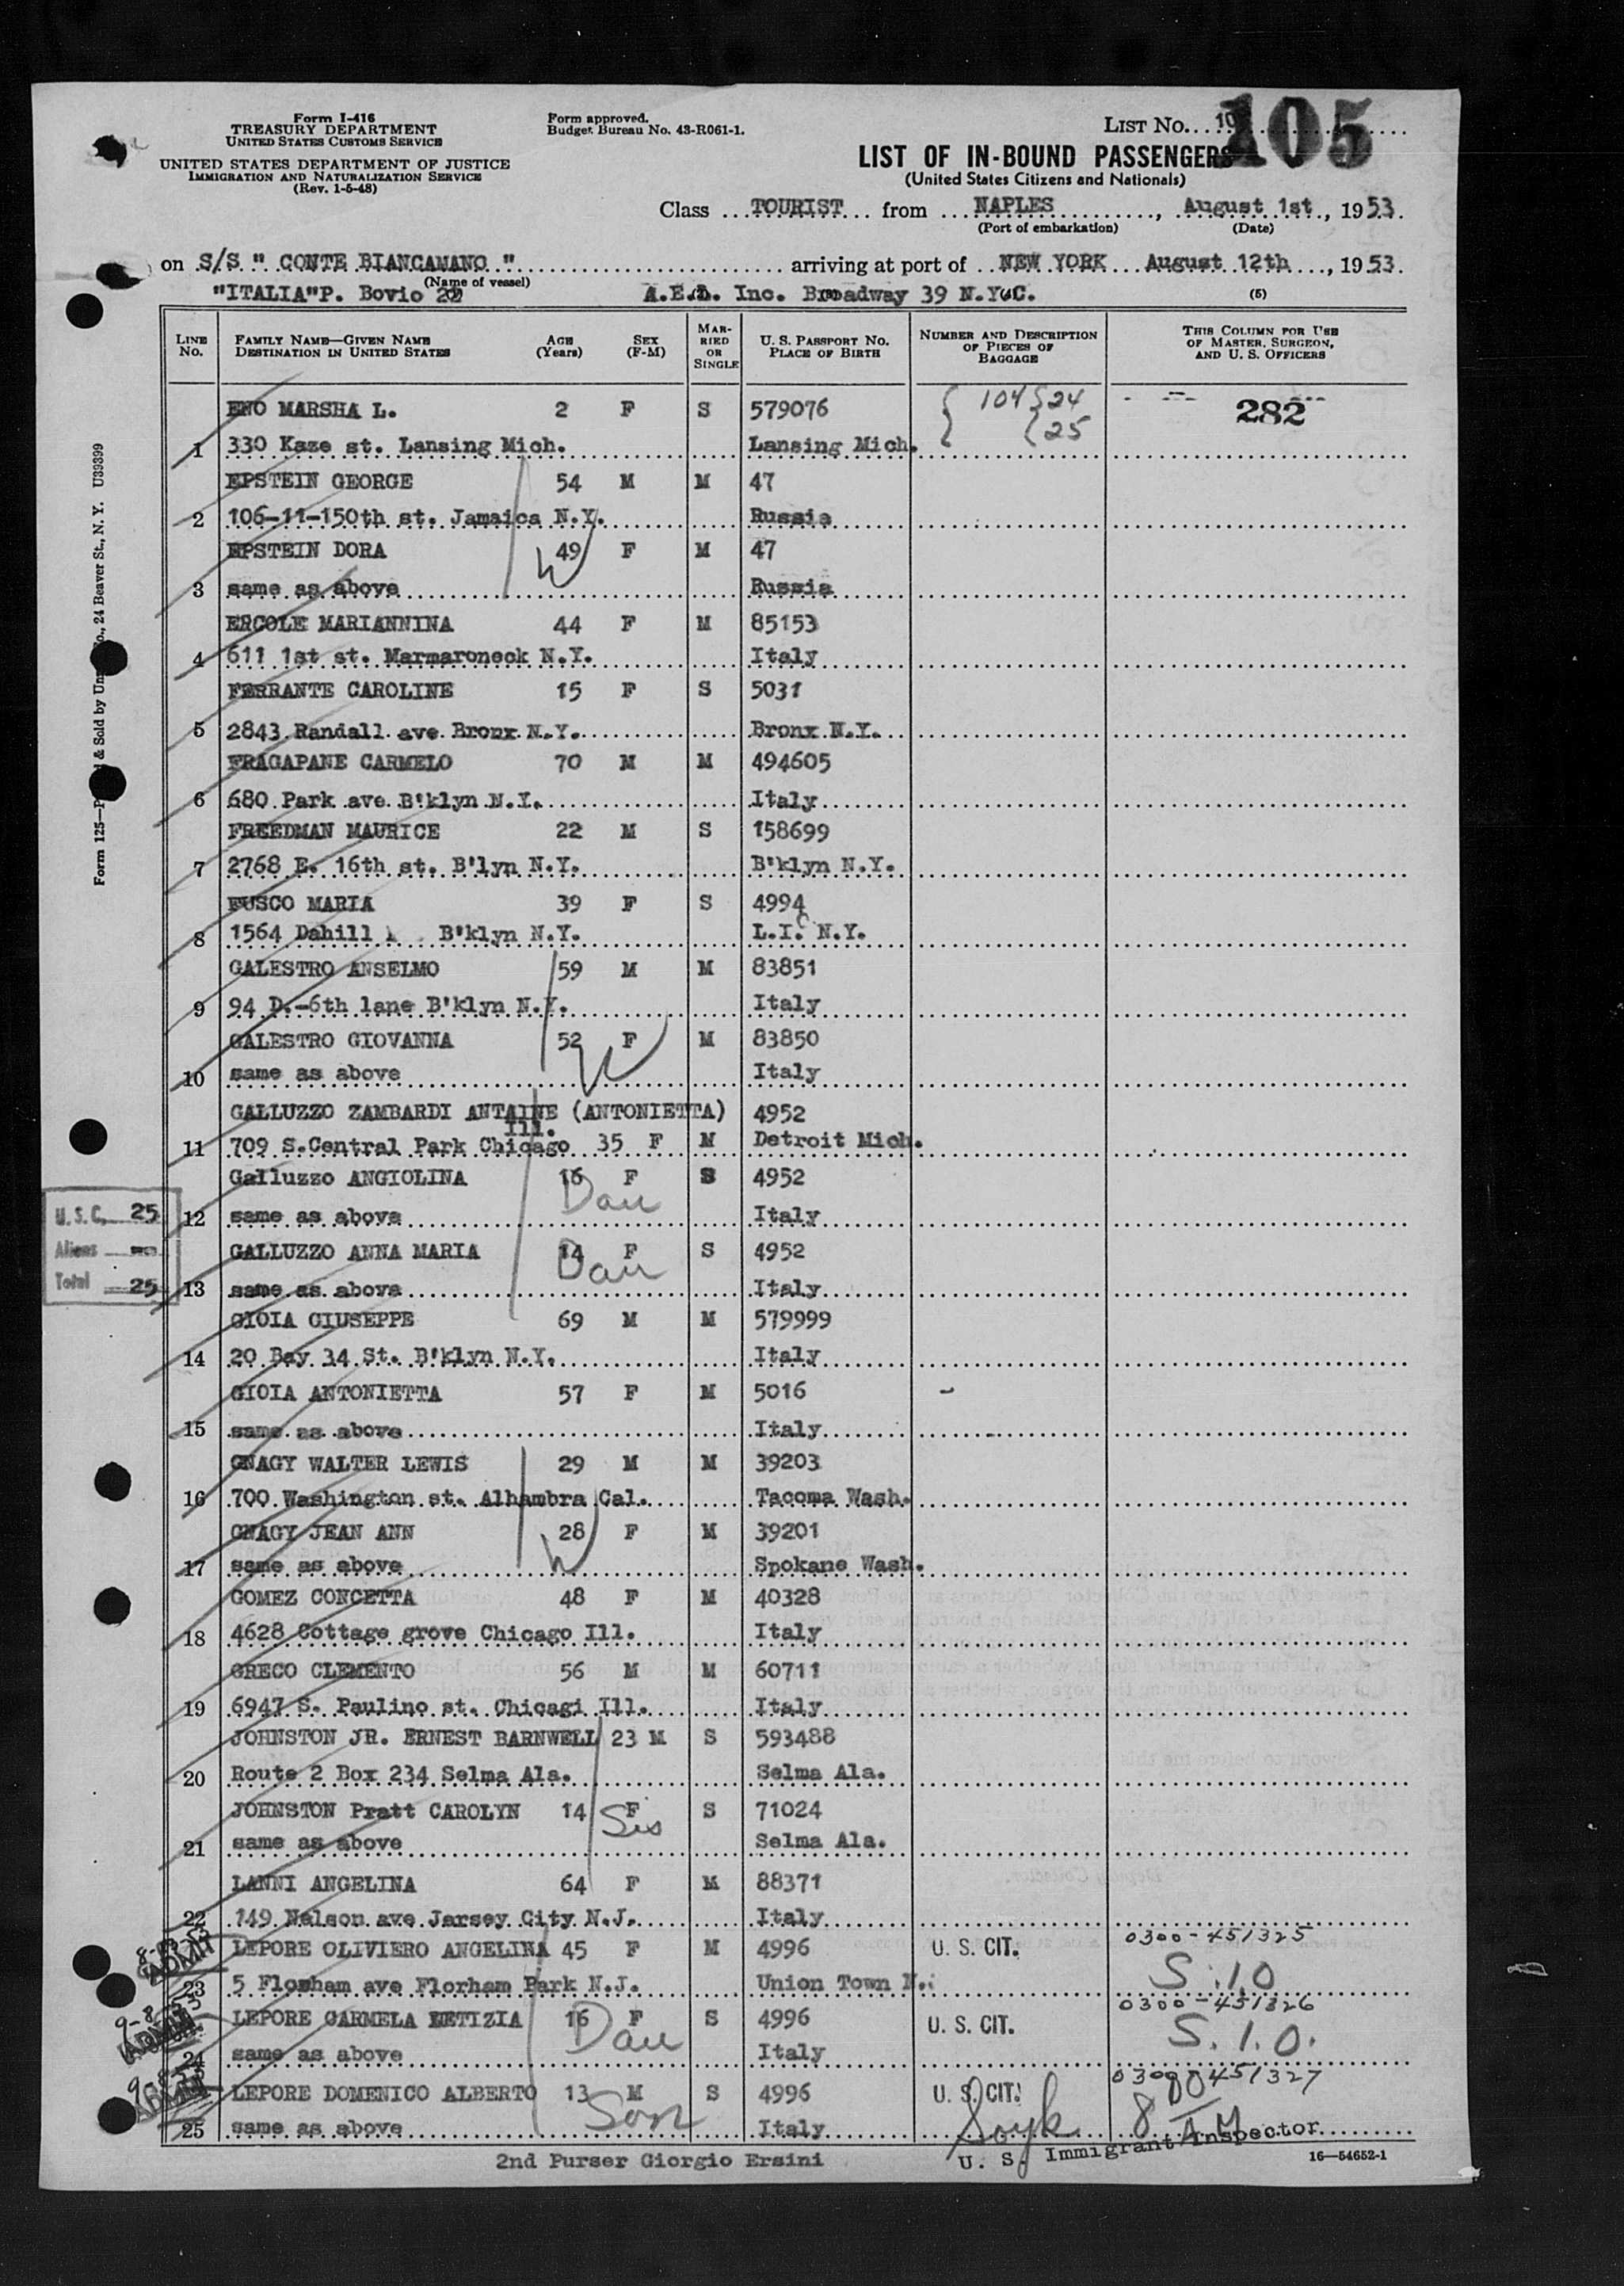 Form I-416
TREASURY DEPARTMENT
UNITED STATES CUSTOMS SERVICE
UNITED STATES DEPARTMENT OF JUSTICE
IMMIGRATION AND NATURALIZATION SERVICE
(Rev. 1-5-48)
Form approved.
Budget Bureau No. 43-R061-1.
LIST NO. 10
105
LIST OF IN-BOUND PASSENGERS
(United States Citizens and Nationals)
Class TOURIST from NAPLES, August 1st, 1953.
(Port of embarkation) (Date)
on S/S " CONTE BIANCAMANO " arriving at port of NEW YORK August 12th, 1953.
(Name of vessel)
"ITALIA"P. Bovio 22 A.E.D. Inc. Broadway 39 N.Y.C. (5)
LINE No. FAMILY NAME—GIVEN NAME DESTINATION IN UNITED STATES AGE (Years) SEX (F-M) MARRIED OR SINGLE U. S. PASSPORT NO. PLACE OF BIRTH NUMBER AND DESCRIPTION OF PIECES OF BAGGAGE THIS COLUMN FOR USE OF MASTER, SURGEON, AND U. S. OFFICERS
ENO MARSHA L. 2 F S 579076 104 24 282
25
1 330 Kaze st. Lansing Mich. Lansing Mich.
EPSTEIN GEORGE 54 M M 47
2 106-11-150th st. Jamaica N.Y. Russia
EPSTEIN DORA 49 F M 47
W
3 same as above Russia
ERCOLE MARIANNINA 44 F M 85153
4 611 1st st. Marmaroneck N.Y. Italy
FERRANTE CAROLINE 15 F S 5031
5 2843 Randall ave Bronx N.Y. Bronx N.Y.
FRAGAPANE CARMELO 70 M M 494605
6 680 Park ave B'klyn N.Y. Italy
FREEDMAN MAURICE 22 M S 158699
7 2768 E. 16th st. B'lyn N.Y. B'klyn N.Y.
FUSCO MARIA 39 F S 4994
8 1564 Dahill B'klyn N.Y. L.I.C N.Y.
GALESTRO ANSELMO 59 M M 83851
9 94 D.-6th lane B'klyn N.Y. Italy
GALESTRO GIOVANNA 52 F M 83850
W
10 same as above Italy
GALLUZZO ZAMBARDI ANTAINE (ANTONIETTA) 4952
Ill.
11 709 S.Central Park Chicago 35 F M Detroit Mich.
Galluzzo ANGIOLINA 16 F S 4952
Dau
12 same as above Italy
GALLUZZO ANNA MARIA 14 F S 4952
Dau
13 same as above Italy
GIOIA GIUSEPPE 69 M M 579999
14 20 Bay 34 St. B'klyn N.Y. Italy
GIOIA ANTONIETTA 57 F M 5016
15 same as above Italy
GNAGY WALTER LEWIS 29 M M 39203
16 700 Washington st. Alhambra Cal. Tacoma Wash.
GNAGY JEAN ANN 28 F M 39201
W
17 same as above Spokane Wash.
GOMEZ CONCETTA 48 F M 40328
18 4628 Cottage grove Chicago Ill. Italy
GRECO CLEMENTO 56 M M 60711
19 6947 S. Paulino st. Chicagi Ill. Italy
JOHNSTON JR. ERNEST BARNWELL 23 M S 593488
20 Route 2 Box 234 Selma Ala. Selma Ala.
JOHNSTON Pratt CAROLYN 14 F S 71024
Sis
21 same as above Selma Ala.
LANNI ANGELINA 64 F M 88371
22 149 Nelson ave Jarsey City N.J. Italy
LEPORE OLIVIERO ANGELINA 45 F M 4996 U. S. CIT. 0300-451325
S.I.O
23 5 Florham ave Florham Park N.J. Union Town N.
LEPORE CARMELA LETIZIA 16 F S 4996 U. S. CIT. 0300-451326
Dau S.I.O.
24 same as above Italy
LEPORE DOMENICO ALBERTO 13 M S 4996 U. S. CIT. 0300-451327
Son
25 same as above Italy
U. S. Immigrant Inspector
2nd Purser Giorgio Ersini
16—54652-1
U.S.C. 25
Aliens
Total 25
ADMT
ADMT
ADMT
24 Beaver St., N. Y. U39399
Form 125
& Sold by